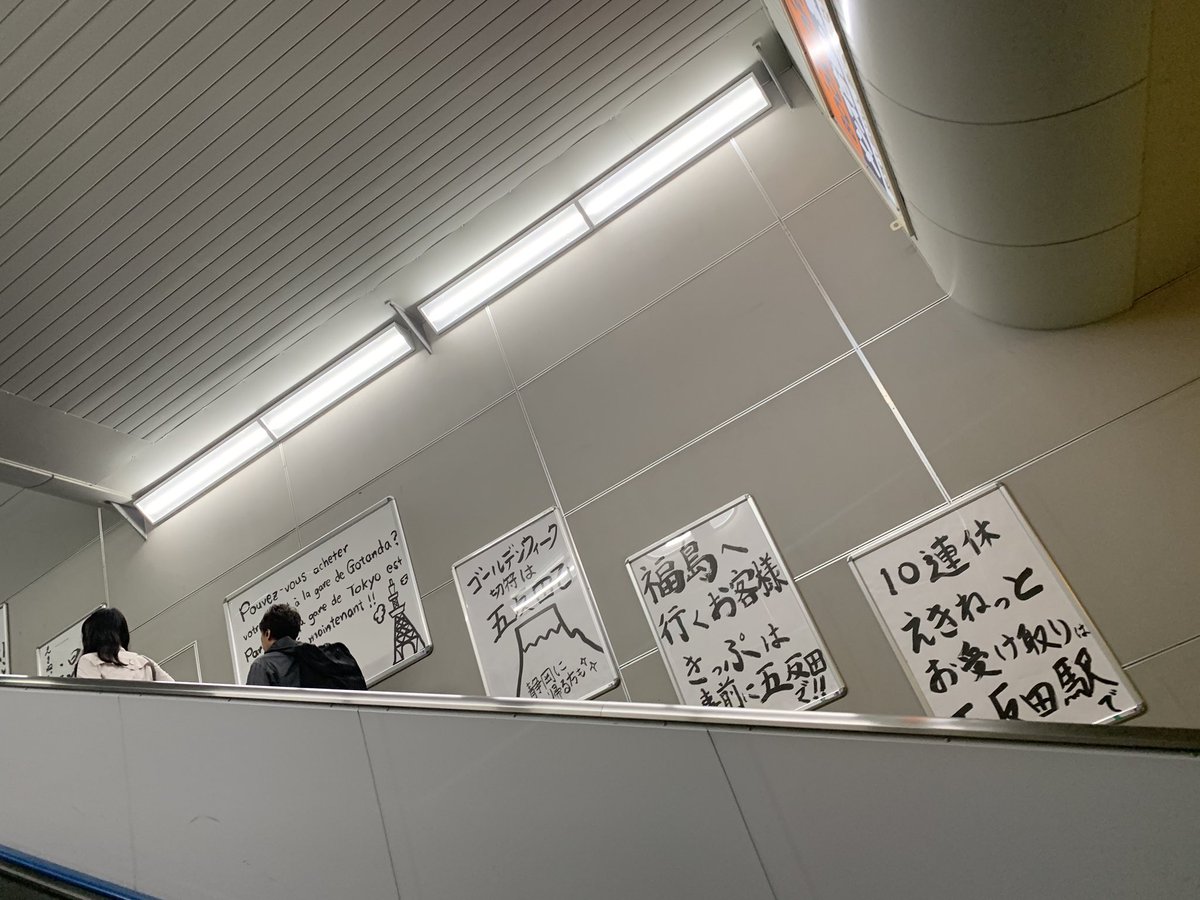 Pouvez-vous acheter
à la gare de Gotanda?
gare de Tokyo est
maintenant!!
ゴールデンウィーク
切符は
静岡に
帰る方ジャ
福島へ
行くお客様
きっぷは
事前に五反田
で!!
10連休
えきねっと
お受け取りは
五反田駅で